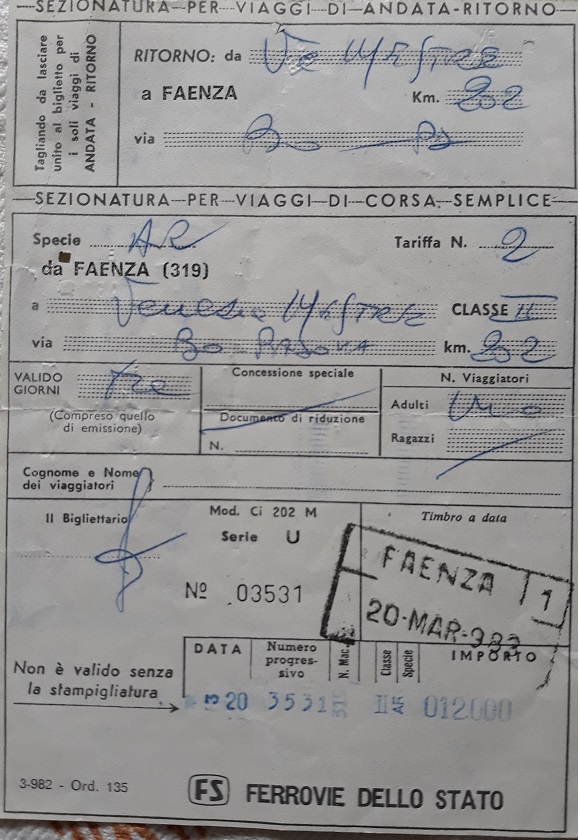 SEZIONATURA-PER-VIAGGI-DI-ANDATA-RITORNO
Tagliando da lasciare
unito al biglietto per
i soli viaggi di
ANDATA - RITORNO
RITORNO: da Ve MESTRE
a FAENZA Km. 202
via Bo - PD
SEZIONATURA-PER-VIAGGI-DI-CORSA-SEMPLICE
Specie AR Tariffa N. 2
da FAENZA (319)
a Venezia MESTRE CLASSE II
via Bo PADOVA km. 202
VALIDO
GIORNI Tre
(Compreso quello
di emissione)
Concessione speciale
Documento di riduzione
N.
N. Viaggiatori
Adulti Uno
Ragazzi
Cognome e Nome
dei viaggiatori
Il Bigliettario
Mod. Ci 202 M
Serie U
Nº 03531
Timbro a data
FAENZA 1
20-MAR-983
Non è valido senza
la stampigliatura
DATA Numero
progres-
sivo N. Mac. Classe Specie IMPORTO
3 20 3531 II AR 012000
3-982 - Ord. 135
FS FERROVIE DELLO STATO